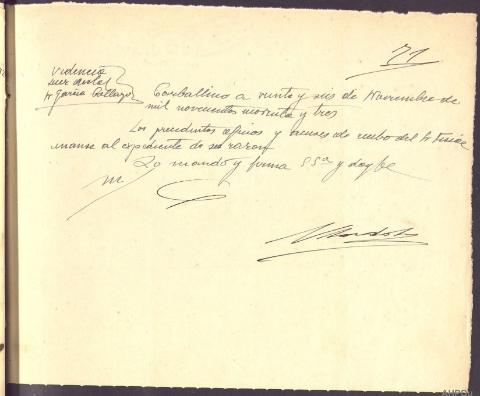 71
Videncia
Juez acctal
Sr Garcia Gallego
Carballino a veinte y seis de Noviembre de
mil novecientos noventa y tres
Los precedentes oficios y acuses de recibo del Sr Fiscal
unanse al expediente de su razon
Lo mando y firma SSª y doy fe
M.